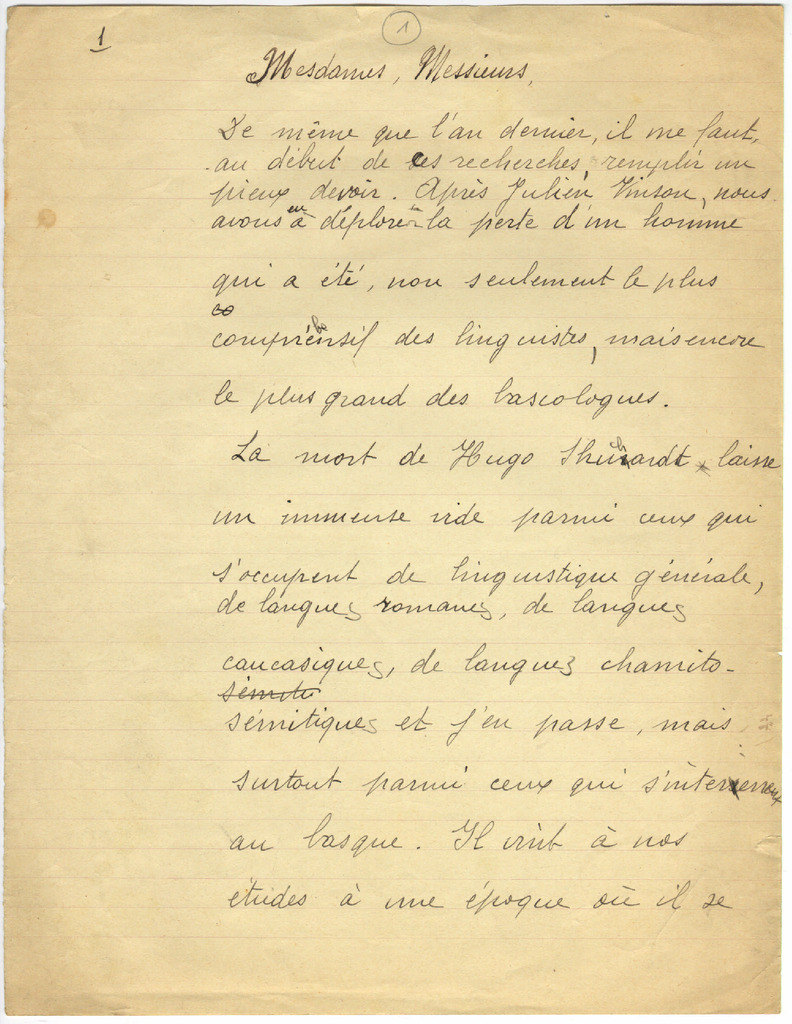 1
1
Mesdames, Messieurs,
De même que l'an dernier, il me faut,
au début de ces recherches, remplir un
pieux devoir. Après Julien Vinson, nous
avons eu à déplorer la perte d'un homme
qui a été, non seulement le plus
co
compréhensif des linguistes, mais encore
le plus grand des bascologues.
La mort de Hugo Shuhardt laisse
un immense vide parmi ceux qui
s'occupent de linguistique générale,
de langues romanes, de langues
caucasiques, de langues chamito-
sémiti
sémitiques et j'en passe, mais
surtout parmi ceux qui s'intéressent
au basque. Il vint à nos
études à une époque où il se